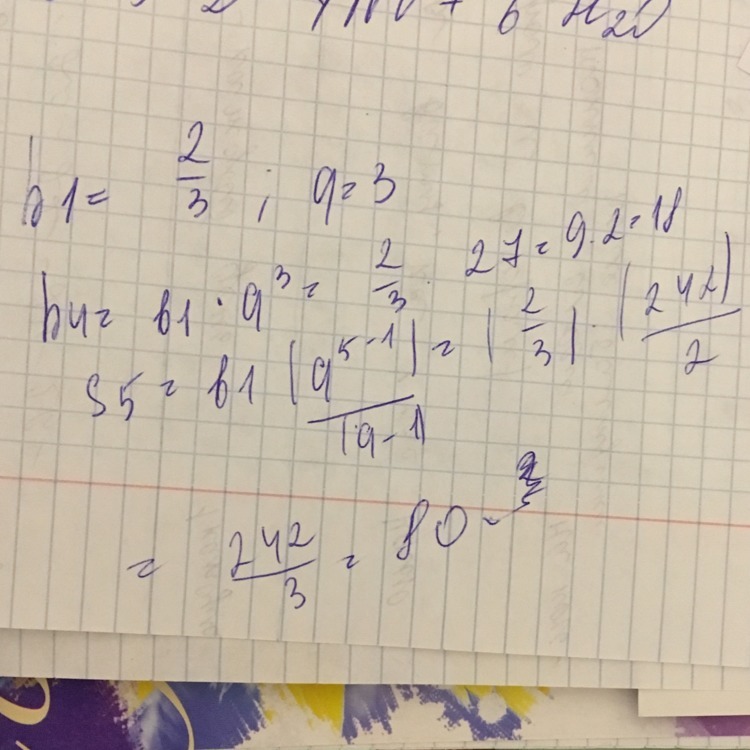 4NO + 6 H2O
b1 = 2/3 ; q = 3
b4 = b1 · q^3 = 2/3 · 27 = 9 · 2 = 18
S5 = b1 (q^5-1)/(q-1) = (2/3) · (242)/2
= 242/3 = 80